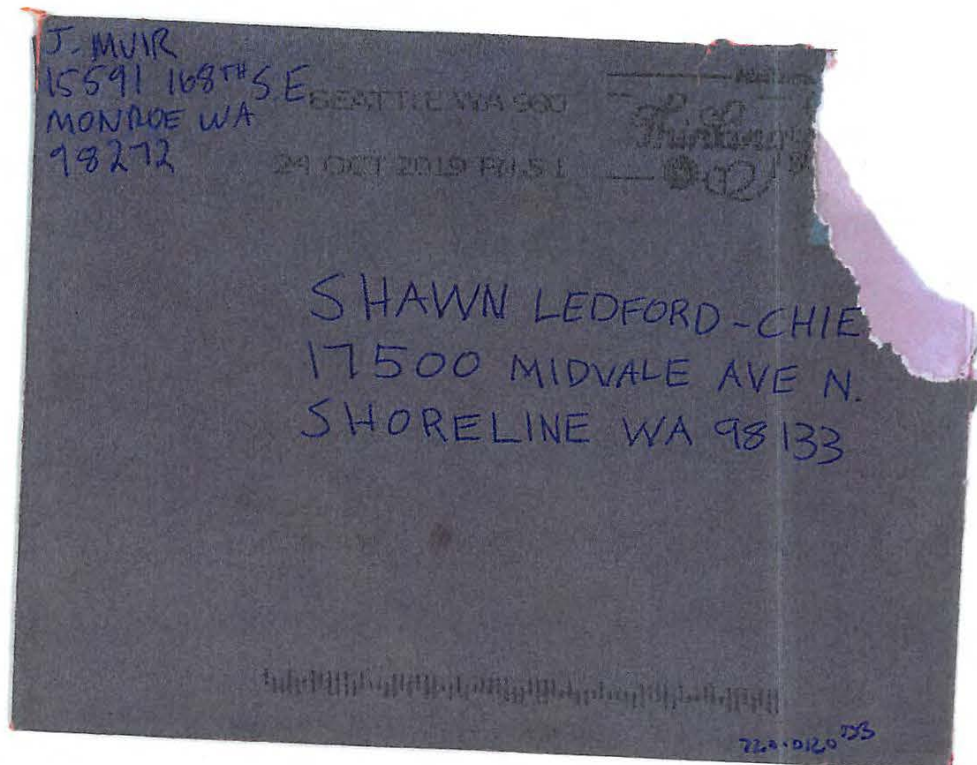 J. MUIR
15591 168TH S E
MONROE WA
98272
SEATTLE WA 980
24 OCT 2019 PM 5 L
SHAWN LEDFORD - CHIE
17500 MIDVALE AVE N.
SHORELINE WA 98133